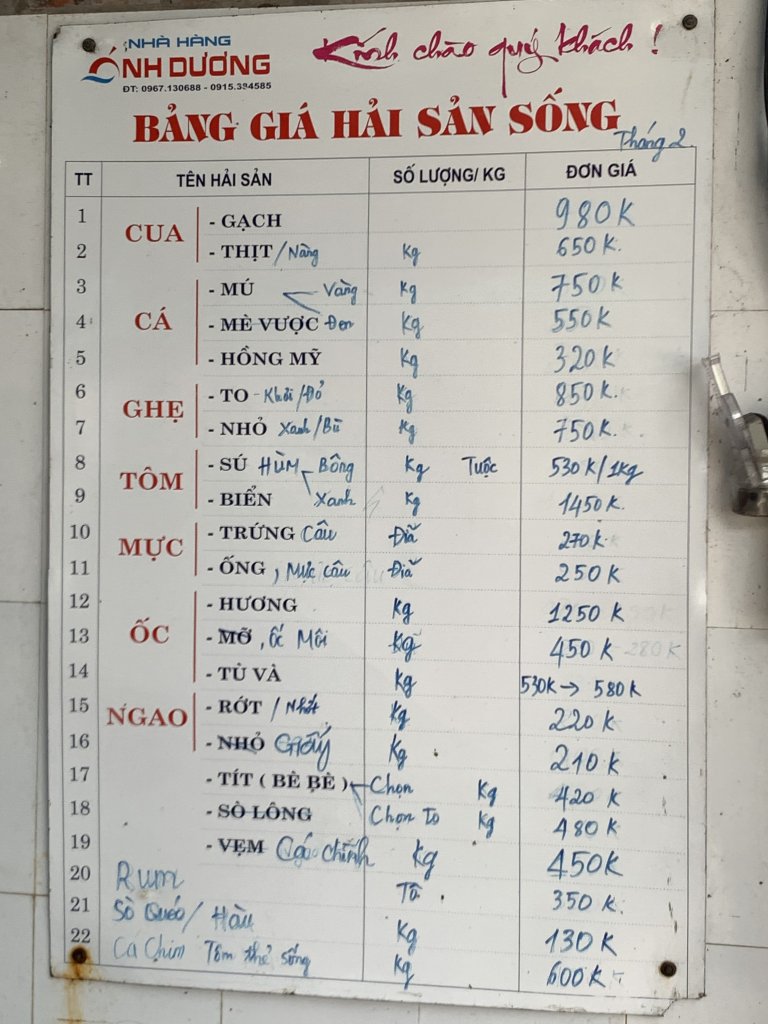 NHÀ HÀNG
ÁNH DƯƠNG
ĐT: 0967.130688 - 0915.394585
Kính chào quý khách !
BẢNG GIÁ HẢI SẢN SỐNG
Tháng 2
TT TÊN HẢI SẢN SỐ LƯỢNG/ KG ĐƠN GIÁ
1 CUA - GẠCH 980K
2 - THỊT /Nàng Kg 650K.
3 CÁ - MÚ Vàng Kg 750K
4 - MÈ VƯỢC Đen Kg 550K
5 - HỒNG MỸ Kg 320K
6 GHẸ - TO - Khôi/Đỏ Kg 850K.
7 - NHỎ Xanh/Bù Kg 750K.
8 TÔM - SÚ HÙM - Bông Kg Tuộc 530K/1Kg
9 - BIỂN Xanh Kg 1450K.
10 MỰC - TRỨNG Câu Đĩa 270K
11 - ỐNG , Mực câu Đĩa 250K
12 ỐC - HƯƠNG Kg 1250K
13 - MỠ , ốc Môi Kg 450K - 280K
14 - TÙ VÀ Kg 530K → 580K
15 NGAO - RỚT / Kg 220K
16 - NHỎ Giấy Kg 210K
17 - TÍT ( BỀ BỀ ) Chọn Kg 420K
18 - SÒ LÔNG Chọn To Kg 480K
19 - VẸM Kg 450K
20 Rum Tô 350K.
21 Sò Quéo/ Hàu Kg 130K
22 Cá Chim Tôm thẻ sống Kg 600K